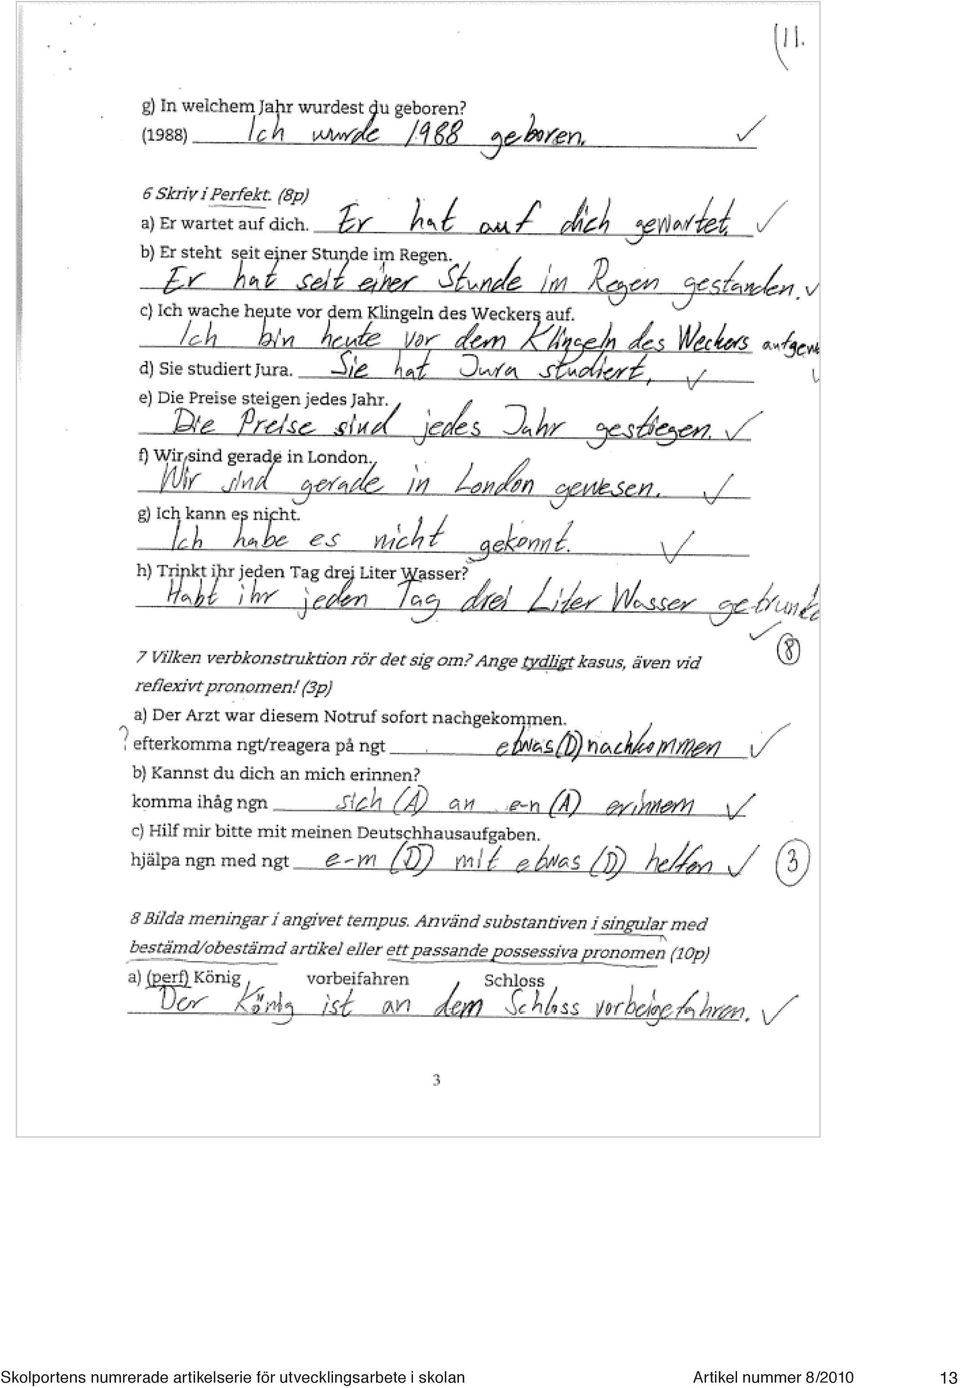 (11.
g) In welchem Jahr wurdest du geboren?
(1988) Ich wurde 1988 geboren. ✓
6 Skriv i Perfekt. (8p)
a) Er wartet auf dich. Er hat auf dich gewartet. ✓
b) Er steht seit einer Stunde im Regen.
Er hat seit einer Stunde im Regen gestanden. ✓
c) Ich wache heute vor dem Klingeln des Weckers auf.
Ich bin heute vor dem Klingeln des Weckers aufgew
d) Sie studiert Jura. Sie hat Jura studiert. ✓
e) Die Preise steigen jedes Jahr.
Die Preise sind jedes Jahr gestiegen. ✓
f) Wir sind gerade in London.
Wir sind gerade in London gewesen. ✓
g) Ich kann es nicht.
Ich habe es nicht gekonnt. ✓
h) Trinkt ihr jeden Tag drei Liter Wasser?
Habt ihr jeden Tag drei Liter Wasser getrunke
✓ 8
7 Vilken verbkonstruktion rör det sig om? Ange tydligt kasus, även vid
reflexivt pronomen! (3p)
a) Der Arzt war diesem Notruf sofort nachgekommen.
? efterkomma ngt/reagera på ngt etwas (D) nachkommen ✓
b) Kannst du dich an mich erinnen?
komma ihåg ngn sich (A) an e-n (A) erinnern ✓
c) Hilf mir bitte mit meinen Deutschhausaufgaben.
hjälpa ngn med ngt e-m (D) mit etwas (D) helfen ✓ 3
8 Bilda meningar i angivet tempus. Använd substantiven i singular med
bestämd/obestämd artikel eller ett passande possessiva pronomen (10p)
a) (perf) König vorbeifahren Schloss
Der König ist an dem Schloss vorbeigefahren. ✓
3
Skolportens numrerade artikelserie för utvecklingsarbete i skolan Artikel nummer 8/2010 13